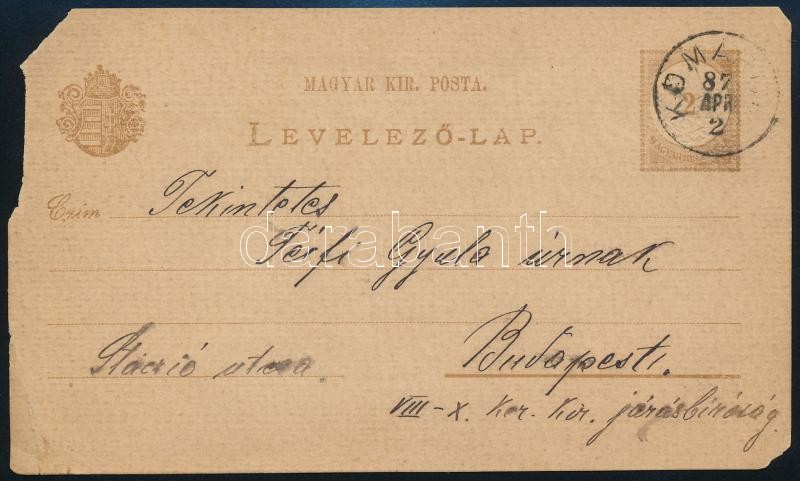 MAGYAR KIR. POSTA.
LEVELEZŐ-LAP.
KOMÁ
87
APR
2
2
MAGYAR
Czim
Tekintetes
Gyula úrnak
darabanth
Budapest.
Stáczió utcza
VIII-X. Ker. Kir. járásbíróság.